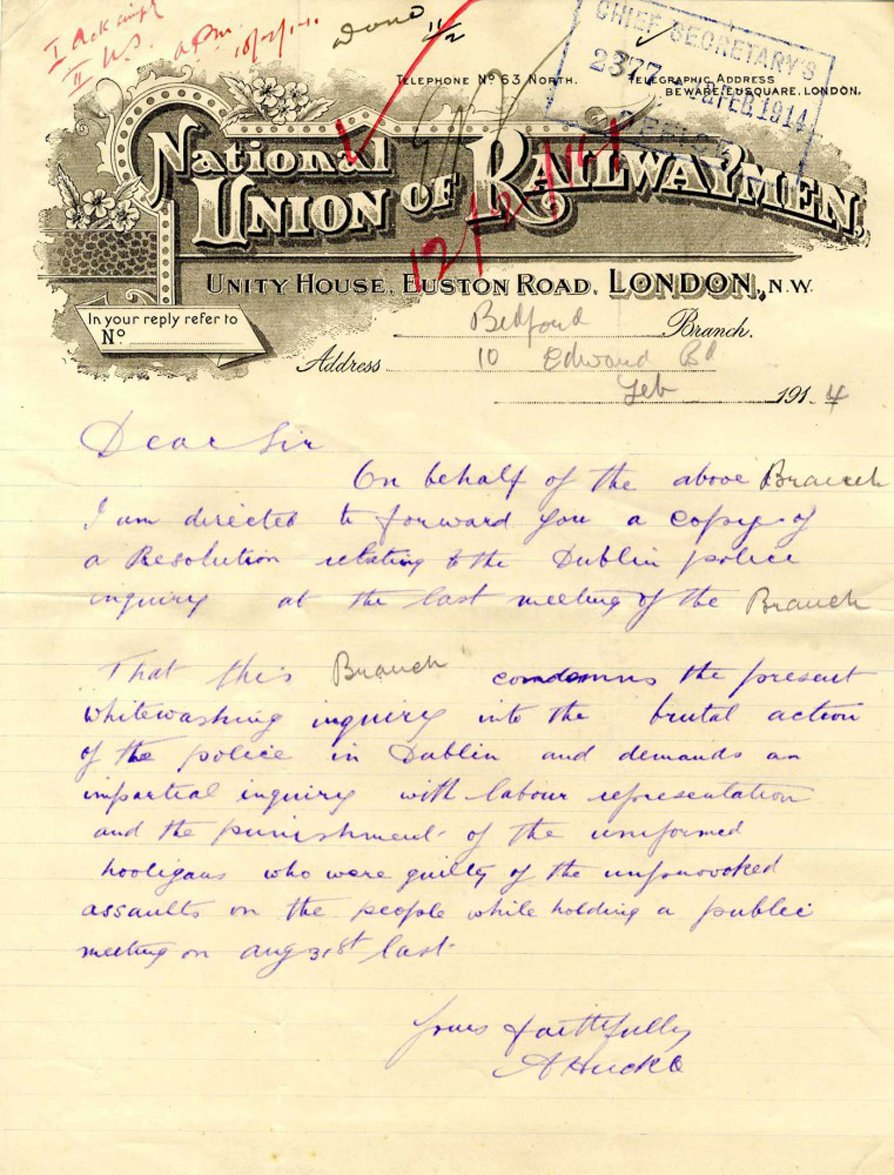 I Ack
II U.S.
Done 11/2
CHIEF SECRETARY'S
2377 FEB. 1914
TELEPHONE Nº 63 NORTH.
TELEGRAPHIC ADDRESS
BEWARE, EUSQUARE, LONDON.
National
Union of Railwaymen,
12/2/14
Unity House, Euston Road, London, N.W.
In your reply refer to
Nº
Bedford Branch.
Address 10 Edward Rd
Feb 1914
Dear Sir
On behalf of the above Branch
I am directed to forward you a copy of
a Resolution relating to the Dublin police
inquiry at the last meeting of the Branch
That this Branch condemns the present
whitewashing inquiry into the brutal action
of the police in Dublin and demands an
impartial inquiry with labour representation
and the punishment of the uniformed
hooligans who were guilty of the unprovoked
assaults on the people while holding a public
meeting on Aug 31st last
Yours faithfully